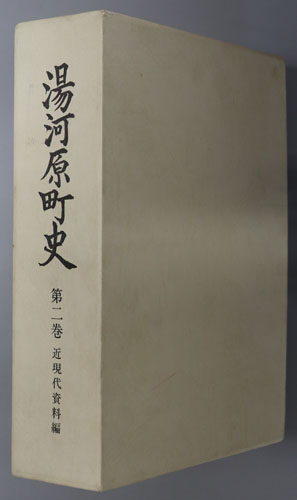 湯河原町史
第二巻 近現代資料編